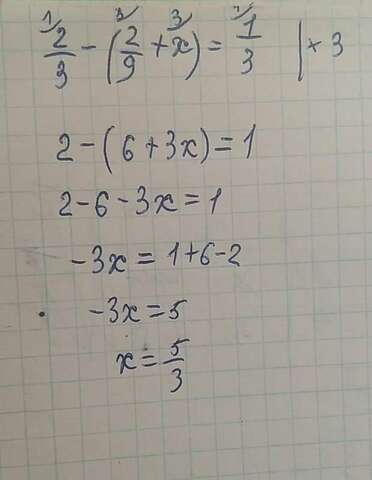 1/ 3/ 3/ 1/
2/3 - (2/9 + x) = 1/3 | × 3
2 - (6 + 3x) = 1
2 - 6 - 3x = 1
-3x = 1 + 6 - 2
-3x = 5
x = 5/3